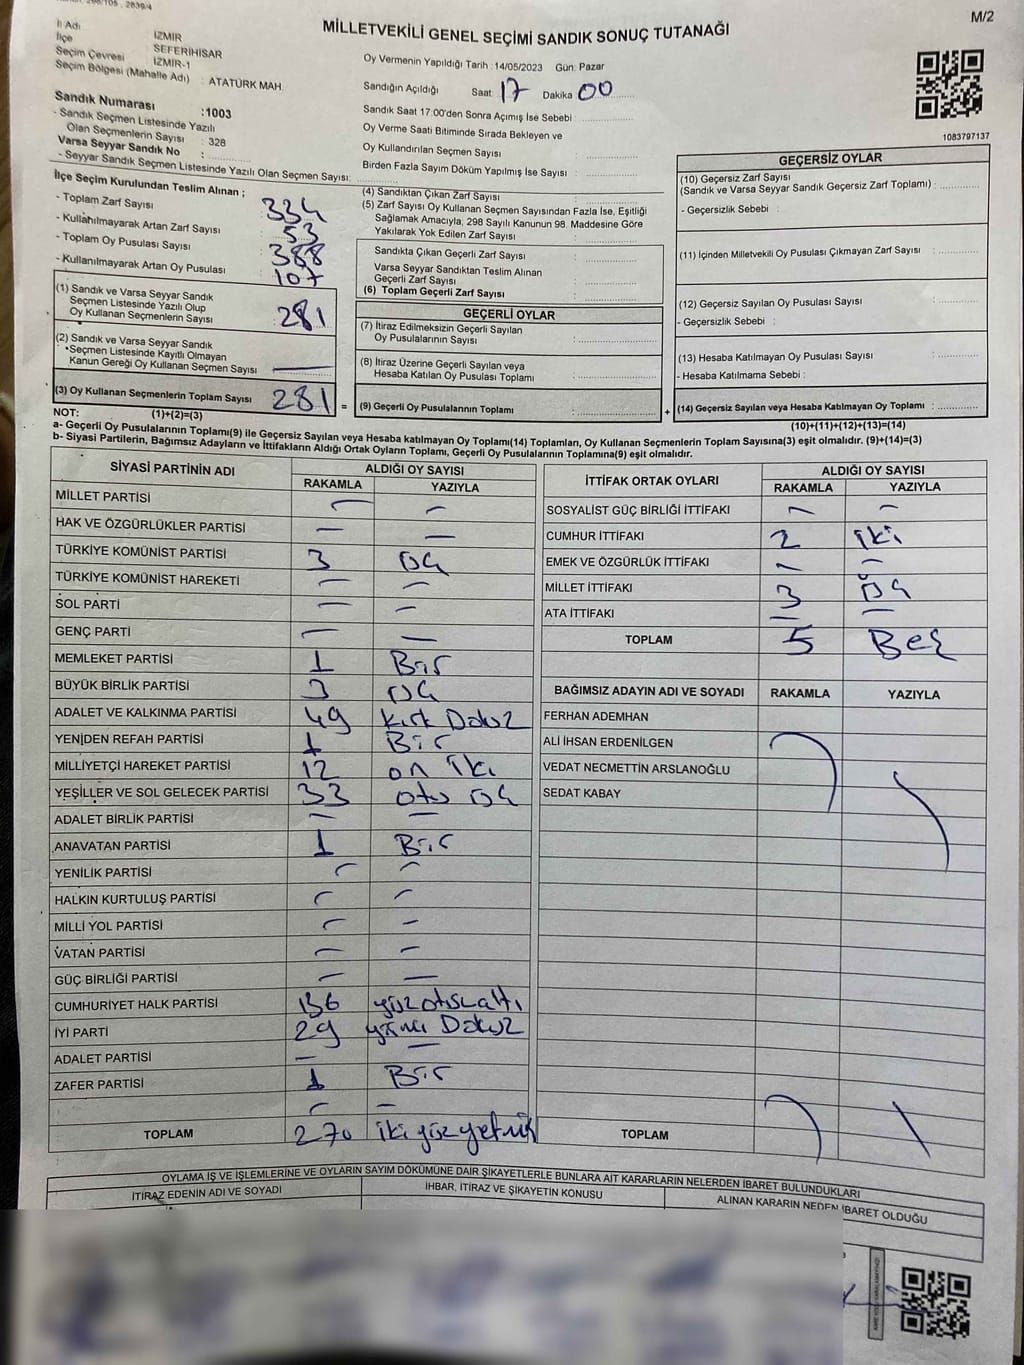 MİLLETVEKİLİ GENEL SEÇİMİ SANDIK SONUÇ TUTANAĞI
M/2
İl Adı İZMİR
İlçe SEFERİHİSAR
Seçim Çevresi İZMİR-1
Seçim Bölgesi (Mahalle Adı) : ATATÜRK MAH
Sandık Numarası :1003
- Sandık Seçmen Listesinde Yazılı
Olan Seçmenlerin Sayısı : 328
Varsa Seyyar Sandık No :
- Seyyar Sandık Seçmen Listesinde Yazılı Olan Seçmen Sayısı:
Oy Vermenin Yapıldığı Tarih :14/05/2023 Gün: Pazar
Sandığın Açıldığı Saat 17 Dakika 00
Sandık Saat 17:00'den Sonra Açımış İse Sebebi :
Oy Verme Saati Bitiminde Sırada Bekleyen ve
Oy Kullandırılan Seçmen Sayısı :
Birden Fazla Sayım Döküm Yapılmış İse Sayısı :
1083797137
İlçe Seçim Kurulundan Teslim Alınan ;
- Toplam Zarf Sayısı : 334
- Kullanılmayarak Artan Zarf Sayısı : 53
- Toplam Oy Pusulası Sayısı : 388
- Kullanılmayarak Artan Oy Pusulası : 107
(1) Sandık ve Varsa Seyyar Sandık
Seçmen Listesinde Yazılı Olup
Oy Kullanan Seçmenlerin Sayısı : 281
(2) Sandık ve Varsa Seyyar Sandık
Seçmen Listesinde Kayıtlı Olmayan
Kanun Gereği Oy Kullanan Seçmen Sayısı : —
(3) Oy Kullanan Seçmenlerin Toplam Sayısı 281 =
(1)+(2)=(3)
(4) Sandıktan Çıkan Zarf Sayısı :
(5) Zarf Sayısı Oy Kullanan Seçmen Sayısından Fazla İse, Eşitliği
Sağlamak Amacıyla, 298 Sayılı Kanunun 98. Maddesine Göre
Yakılarak Yok Edilen Zarf Sayısı :
Sandıkta Çıkan Geçerli Zarf Sayısı :
Varsa Seyyar Sandıktan Teslim Alınan
Geçerli Zarf Sayısı :
(6) Toplam Geçerli Zarf Sayısı :
GEÇERLİ OYLAR
(7) İtiraz Edilmeksizin Geçerli Sayılan
Oy Pusulalarının Sayısı :
(8) İtiraz Üzerine Geçerli Sayılan veya
Hesaba Katılan Oy Pusulası Toplamı :
(9) Geçerli Oy Pusulalarının Toplamı : +
GEÇERSİZ OYLAR
(10) Geçersiz Zarf Sayısı
(Sandık ve Varsa Seyyar Sandık Geçersiz Zarf Toplamı) :
- Geçersizlik Sebebi :
(11) İçinden Milletvekili Oy Pusulası Çıkmayan Zarf Sayısı :
(12) Geçersiz Sayılan Oy Pusulası Sayısı :
- Geçersizlik Sebebi :
(13) Hesaba Katılmayan Oy Pusulası Sayısı :
- Hesaba Katılmama Sebebi :
(14) Geçersiz Sayılan veya Hesaba Katılmayan Oy Toplamı :
(10)+(11)+(12)+(13)=(14)
NOT:
a- Geçerli Oy Pusulalarının Toplamı(9) ile Geçersiz Sayılan veya Hesaba katılmayan Oy Toplamı(14) Toplamları, Oy Kullanan Seçmenlerin Toplam Sayısına(3) eşit olmalıdır. (9)+(14)=(3)
b- Siyasi Partilerin, Bağımsız Adayların ve İttifakların Aldığı Ortak Oyların Toplamı, Geçerli Oy Pusulalarının Toplamına(9) eşit olmalıdır.
SİYASİ PARTİNİN ADI ALDIĞI OY SAYISI
RAKAMLA YAZIYLA
MİLLET PARTİSİ — —
HAK VE ÖZGÜRLÜKLER PARTİSİ — —
TÜRKİYE KOMÜNİST PARTİSİ 3 üç
TÜRKİYE KOMÜNİST HAREKETİ — —
SOL PARTİ — —
GENÇ PARTİ — —
MEMLEKET PARTİSİ 1 Bir
BÜYÜK BİRLİK PARTİSİ 3 üç
ADALET VE KALKINMA PARTİSİ 49 kırk Dokuz
YENİDEN REFAH PARTİSİ 1 Bir
MİLLİYETÇİ HAREKET PARTİSİ 12 on iki
YEŞİLLER VE SOL GELECEK PARTİSİ 33 otuz üç
ADALET BİRLİK PARTİSİ — —
ANAVATAN PARTİSİ 1 Bir
YENİLİK PARTİSİ — —
HALKIN KURTULUŞ PARTİSİ — —
MİLLİ YOL PARTİSİ — —
VATAN PARTİSİ — —
GÜÇ BİRLİĞİ PARTİSİ — —
CUMHURİYET HALK PARTİSİ 136 yüz otuz altı
İYİ PARTİ 29 yirmi Dokuz
ADALET PARTİSİ — —
ZAFER PARTİSİ 1 Bir
— —
TOPLAM 270 iki yüz yetmiş
İTTİFAK ORTAK OYLARI ALDIĞI OY SAYISI
RAKAMLA YAZIYLA
SOSYALİST GÜÇ BİRLİĞİ İTTİFAKI — —
CUMHUR İTTİFAKI 2 iki
EMEK VE ÖZGÜRLÜK İTTİFAKI — —
MİLLET İTTİFAKI 3 üç
ATA İTTİFAKI — —
TOPLAM 5 Beş
BAĞIMSIZ ADAYIN ADI VE SOYADI RAKAMLA YAZIYLA
FERHAN ADEMHAN
ALİ İHSAN ERDENİLGEN
VEDAT NECMETTİN ARSLANOĞLU
SEDAT KABAY
TOPLAM
OYLAMA İŞ VE İŞLEMLERİNE VE OYLARIN SAYIM DÖKÜMÜNE DAİR ŞİKAYETLERLE BUNLARA AİT KARARLARIN NELERDEN İBARET BULUNDUKLARI
İTİRAZ EDENİN ADI VE SOYADI İHBAR, İTİRAZ VE ŞİKAYETİN KONUSU ALINAN KARARIN NEDEN İBARET OLDUĞU